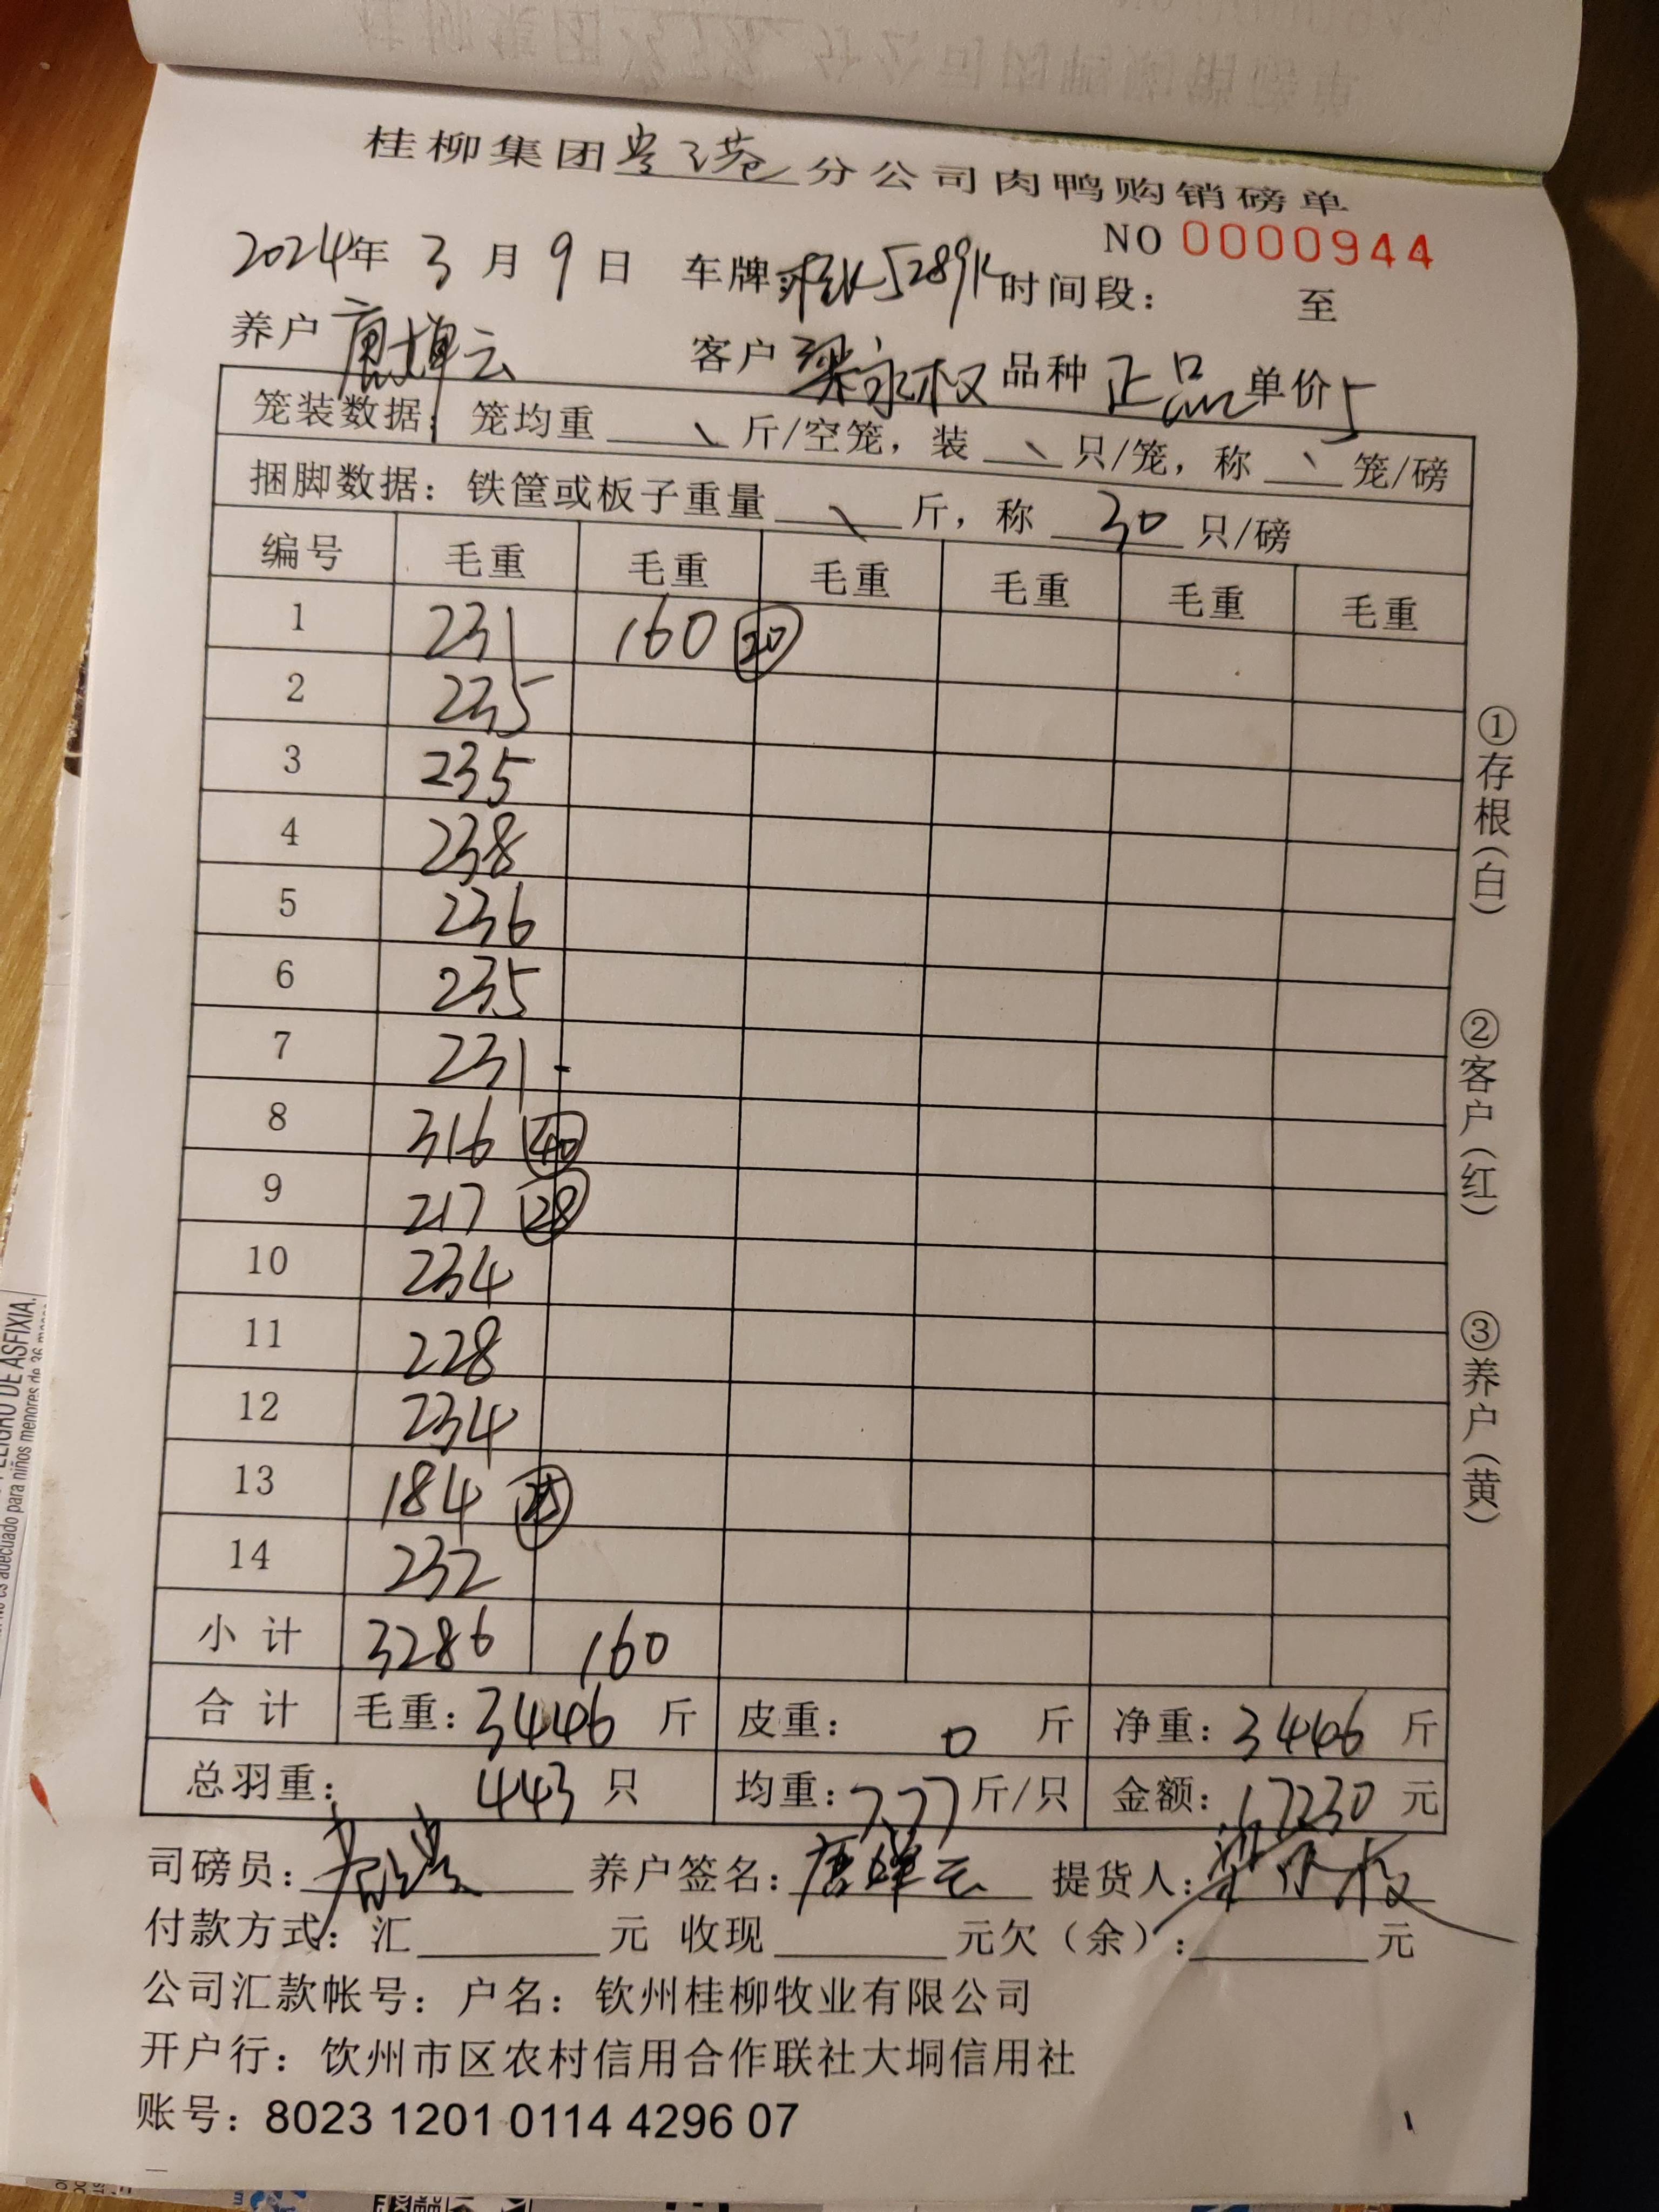 桂柳集团贵港分公司肉鸭购销磅单
NO 0000944
2024年 3 月 9 日 车牌 5289K 时间段: 至
养户 唐婵云 客户 梁永权 品种 正品 单价 5
笼装数据: 笼均重 \ 斤/空笼, 装 \ 只/笼, 称 \ 笼/磅
捆脚数据: 铁筐或板子重量 \ 斤, 称 30 只/磅
编号 毛重 毛重 毛重 毛重 毛重 毛重
1 231 160 ⑳
2 235
3 235
4 238
5 236
6 235
7 231
8 316 ㊵
9 217 ㉘
10 234
11 228
12 234
13 184 ㉕
14 232
小计 3286 160
合计 毛重: 3446 斤 皮重: 0 斤 净重: 3446 斤
总羽重: 443 只 均重: 7.77 斤/只 金额: 17230 元
司磅员: 养户签名: 唐婵云 提货人: 梁永权
付款方式: 汇 元 收现 元欠(余): 元
公司汇款帐号: 户名: 钦州桂柳牧业有限公司
开户行: 饮州市区农村信用合作联社大垌信用社
账号: 8023 1201 0114 4296 07
①存根(白)
②客户(红)
③养户(黄)
PELIGRO DE ASFIXIA.
No es adecuado para niños menores de 36 meses